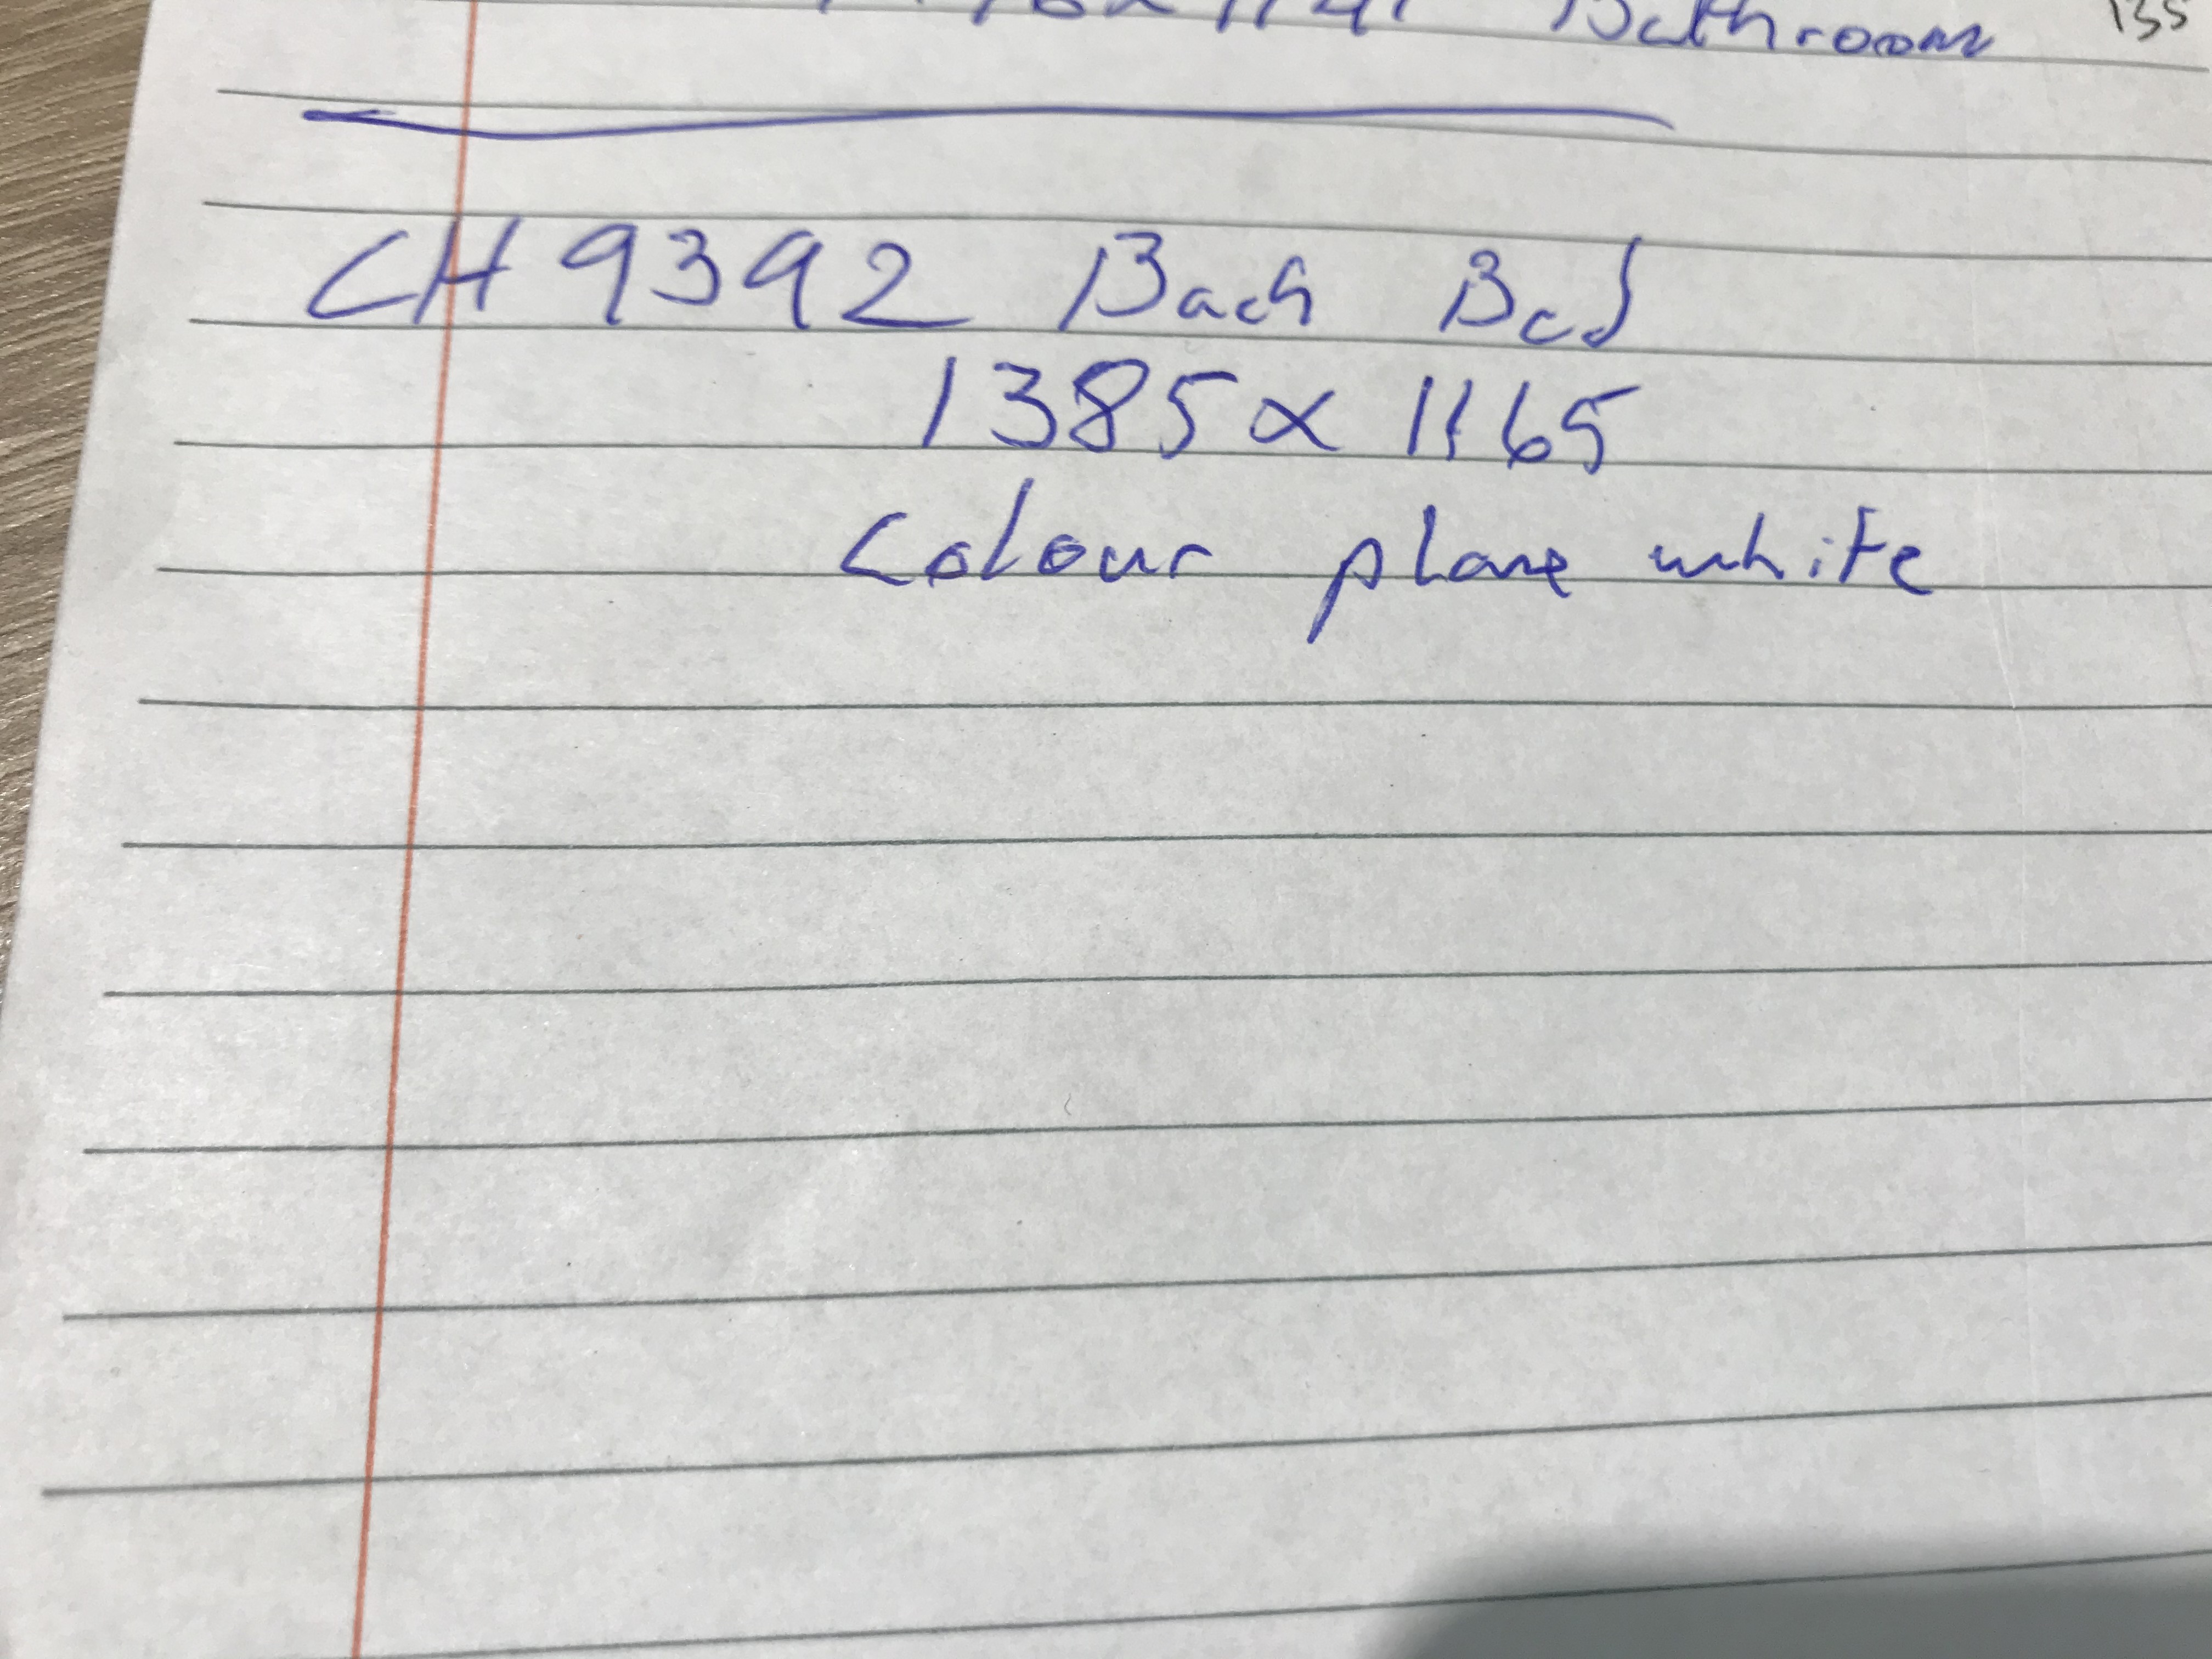 Bathroom 135
CH 9392 Back Bed
1385 x 1165
Colour plane white